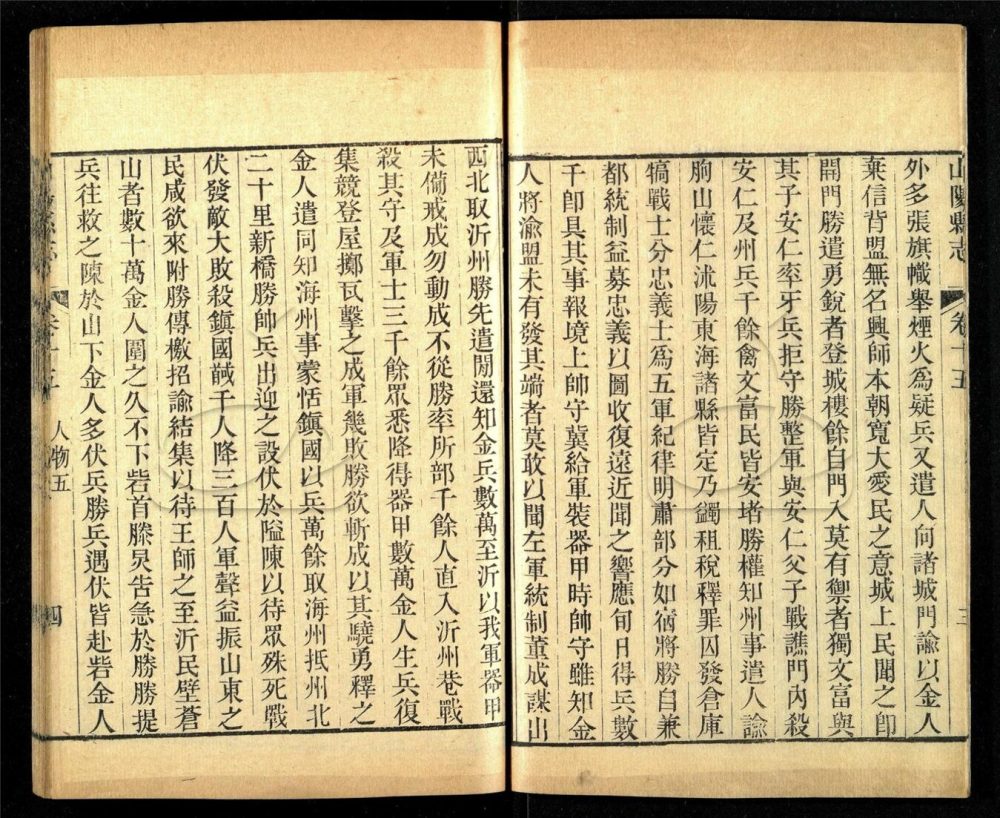 山陽縣志
卷十五
三
外多張旗幟舉煙火爲疑兵又遣人向諸城門諭以金人
棄信背盟無名興師本朝寬大愛民之意城上民聞之卽
開門勝遣勇銳者登城樓餘自門入莫有禦者獨文富與
其子安仁率牙兵拒守勝整軍與安仁父子戰譙門內殺
安仁及州兵千餘禽文富民皆安堵勝權知州事遣人諭
朐山懷仁沭陽東海諸縣皆定乃蠲租稅釋罪囚發倉庫
犒戰士分忠義士爲五軍紀律明肅部分如宿將勝自兼
都統制益募忠義以圖收復遠近聞之響應旬日得兵數
千卽具其事報境上帥守冀給軍裝器甲時帥守雖知金
人將渝盟未有發其端者莫敢以聞左軍統制董成謀出
西北取沂州勝先遣閒還知金兵數萬至沂以我軍器甲
未備戒成勿動成不從勝率所部千餘人直入沂州巷戰
殺其守及軍十三千餘眾悉降得器甲數萬金人生兵復
集競登屋擲瓦擊之成軍幾敗勝欲斬成以其驍勇釋之
金人遣同知海州事蒙恬鎭國以兵萬餘取海州抵州北
二十里新橋勝帥兵出迎之設伏於隘陳以待眾殊死戰
伏發敵大敗殺鎭國馘千人降三百人軍聲益振山東之
民咸欲來附勝傳檄招諭結集以待王師之至沂民壁蒼
山者數十萬金人圍之久不下砦首滕㚖告急於勝勝提
兵往救之陳於山下金人多伏兵勝兵遇伏皆赴砦金人
人物五
四